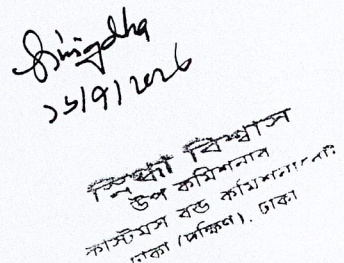 Snigdha
১৬/৭/২০২৬
স্নিগ্ধা বিশ্বাস
উপ কমিশনার
কাস্টমস বন্ড কমিশনারেট
ঢাকা (দক্ষিণ), ঢাকা